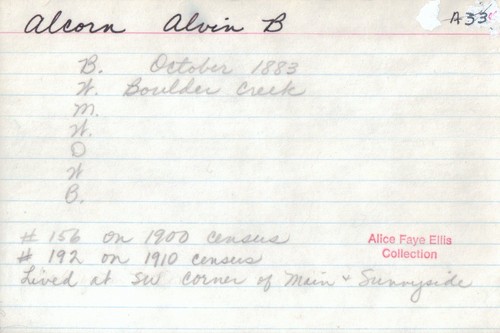 Alcorn Alvin B
A33
B. October 1883
W. Boulder Creek
M.
W.
D
W
B.
# 156 on 1900 census
# 192 on 1910 census
Lived at SW corner of Main & Sunnyside
Alice Faye Ellis
Collection